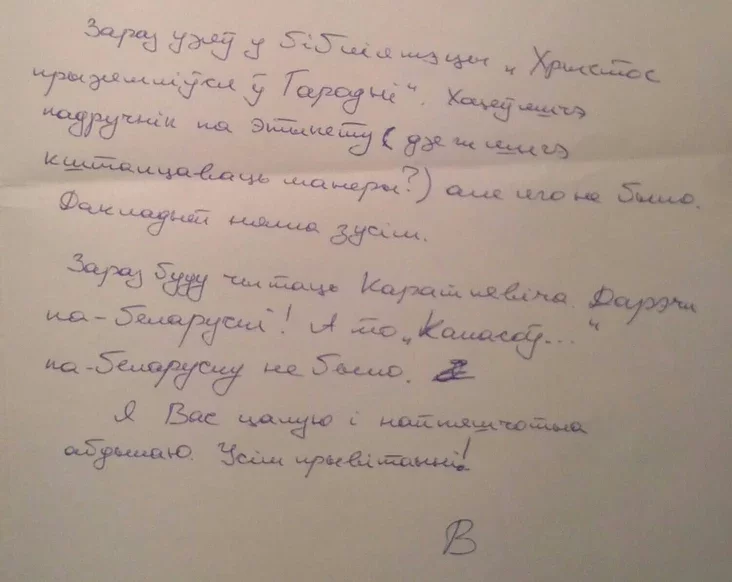 Зараз узяў у бібліятэцы „Хрыстос
прызямліўся ў Гародні". Хацеў яшчэ
падручнік па этыкету (дзе ж яшчэ
кшталцаваць манеры?) але яго не было.
Дакладней няма зусім.
Зараз буду читаць Караткевіча. Дарэчи
па-беларускі! А то „Каласоў..."
па-беларуску не было.
Я Вас цалую і найпяшчотна
абдымаю. Усім прывітанні!
В